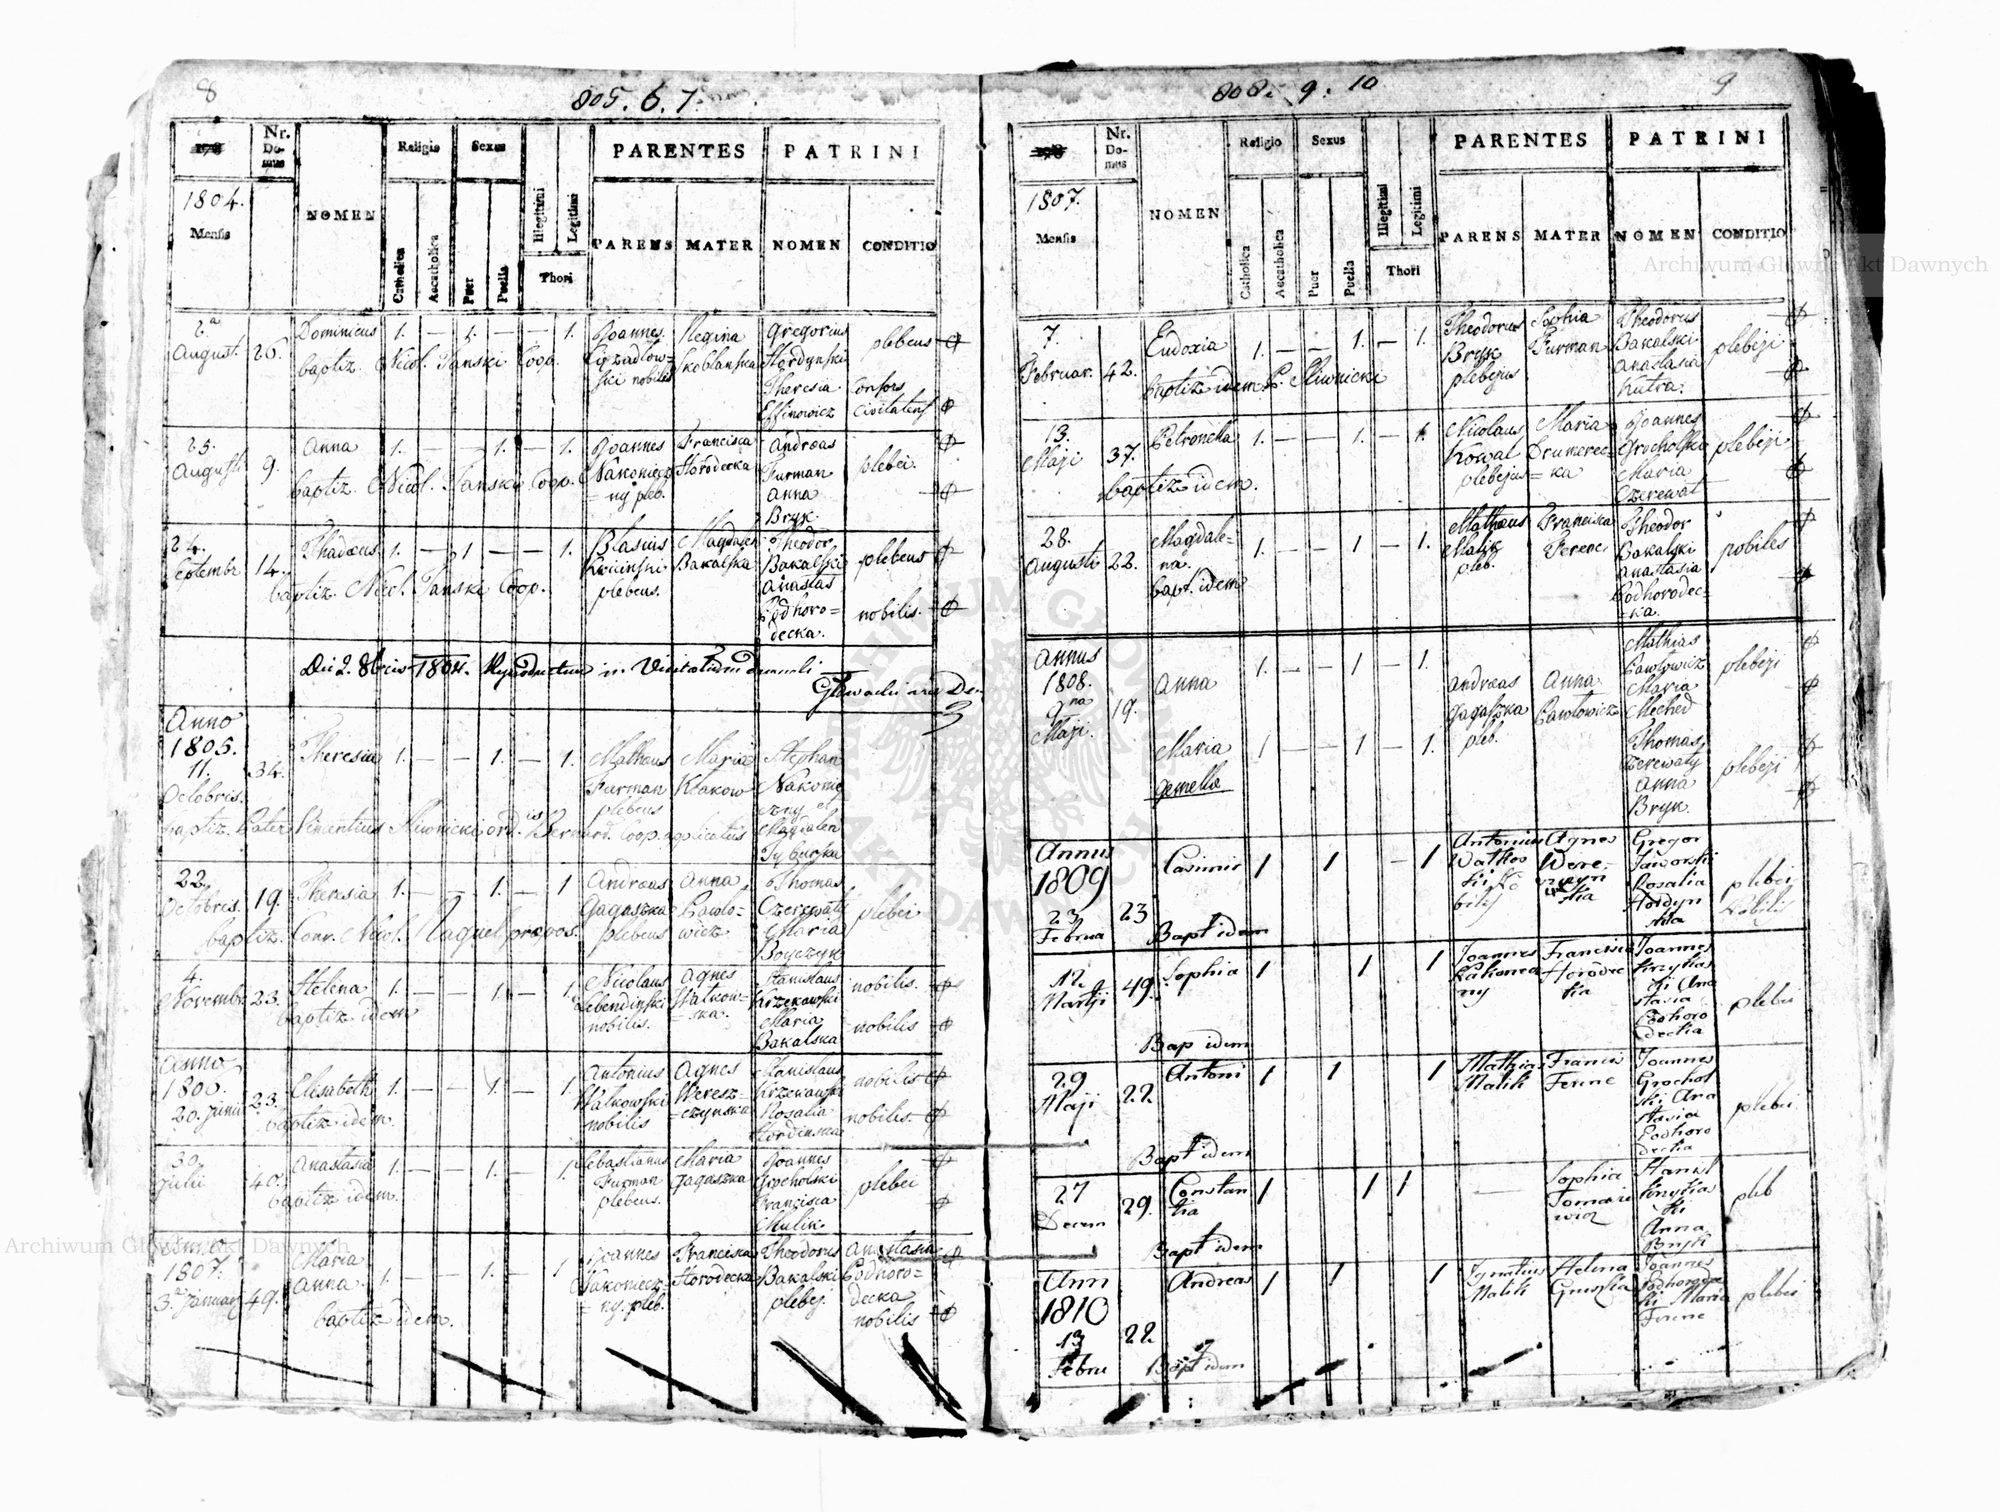 8
805. 6. 7.
1804.
Mensis
Nr. Domus
NOMEN
Religio
Catholica
Aecatholica
Sexus
Puer
Puella
Illegitimi
Legitimi
Thori
PARENTES
PARENS MATER
PATRINI
NOMEN CONDITIO
2a August. 26. Dominicus 1. — 1. — — 1. Joannes Regina Skoblańska Gregorius Hordyński plebeus
nobilis Theresia Consors
baptiz. Nicol. Janski Coop. civitatens
25. Augusti 9. Anna 1. — — 1. — 1. Joannes Nakoniecz=ny pleb. Francisca Horodecka Andreas Furman Anna Bryk plebei
baptiz. Nicol. Janski Coop.
24. Septembr 14. Thadæus 1. — 1 — — 1. Blasius plebeus. Magdalen Bakalska Theodor Bakalski plebeus
Anastas Podhoro=decka. nobilis.
baptiz. Nicol. Janski Coop.
Die 2. 8bris 1804.
Anno 1805.
11. Octobris. 34. Theresia 1. — — 1. — 1. Matheus Furman plebeus Maria Kłakow Stephan Nakonieczny et Magdalen
baptiz. Pater Vincentius Sliwnicki ord. is Bernard. Coop. applicatus
22. Octobris. 19. Theresia 1. — — 1. — 1 Andreas Gagaszka plebeus Anna Pawlo=wicz Thomas Czerewaty Maria Boyczyk plebei
baptiz. Conv. Nicol.
4. Novembr 23. Helena 1. — — 1. — 1. Nicolaus Lebendinski nobilis. Agnes Watkow=ska. Stanislaus Krzekowski nobilis.
Maria Bakalska nobilis
baptiz idem
Anno 1806.
20. Junii 23. Elisabeth 1. — — 1. — 1. Antonius Watkowski nobilis Agnes Weresz=czynska Stanislaus Krzekowski nobilis
Rosalia Hordinska nobilis.
baptiz idem.
30. Julii 40. Anastasia 1. — — 1. — 1. Sebastianus Furman plebeus. Maria Gagaszka Joannes Grocholski Francisca Malik plebei
baptiz idem.
1807.
3a January 49. Maria Anna. 1. — — 1. — 1 Joannes Nakoniecz=ny. pleb. Francisca Horodecka Theodorus Bakalski plebej. Anastasia Podhoro=decka nobilis
baptiz idem.
9
808. 9. 10
1807.
Mensis
Nr. Domus
NOMEN
Religio
Catholica
Aecatholica
Sexus
Puer
Puella
Illegitimi
Legitimi
Thori
PARENTES
PARENS MATER
PATRINI
NOMEN CONDITIO
7. Februar. 42. Eudoxia 1. — — 1. — 1. Theodorus Bryk plebejus Sophia Furman Theodorus Bakalski Anastasia Kutra. plebeji
baptiz idem P. Sliwnicki
13. Maji 37. Petronella 1. — — 1. — 1. Nicolaus Kowal plebejus Maria Joannes Grocholski Maria Czerewat plebeji
baptiz idem.
28. Augusti 22. Magdale=na. 1. — — 1 — 1. Matheus Malik pleb. Francisca Ferenc Theodor Bakalski Anastasia Podhorodec=ka. nobiles
bapt. idem
Annus 1808.
9na Maji. 19. Anna 1. — — 1 — 1. Andreas Gagaszka pleb. Anna Pawlowicz Mathias Pawlowicz Maria Meched plebeji
Maria gemella 1 — — 1 — 1. Thomas Czerewaty Anna Bryk. plebeji
Annus 1809
23 Februa 23 Casimir 1 1 — 1 Antonius Watkoski nobilis Agnes Were=szczynska Gregor Jaworski Rosalia Hordynska plebei Nobilis
Bapt idem
12 Martji 49. Sophia 1 1 1 Joannes Nakoneczny Francisca Horodecka Joannes Krzykaski Anastasia Podhorodecka plebei
Bap idem
29 Maji 22. Antoni 1 1 1 Mathias Malik Francis Ferenc Joannes Grocholski Anastasia Podhorodecka plebei
Bapt idem
27 Decem 29. Constantia 1 1 1 — Sophia Tomaszewicz Anna Bryk pleb
Bapt idem
Ann 1810
13 Febru 22. Andreas 1 1 1 Ignatius Malik Helena Joannes Podhorodeski Maria Ferenc plebei
Bapt idem
Archiwum Główne Akt Dawnych
Archiwum Główne Akt Dawnych
ARCHIWUM GŁÓWNE AKT DAWNYCH